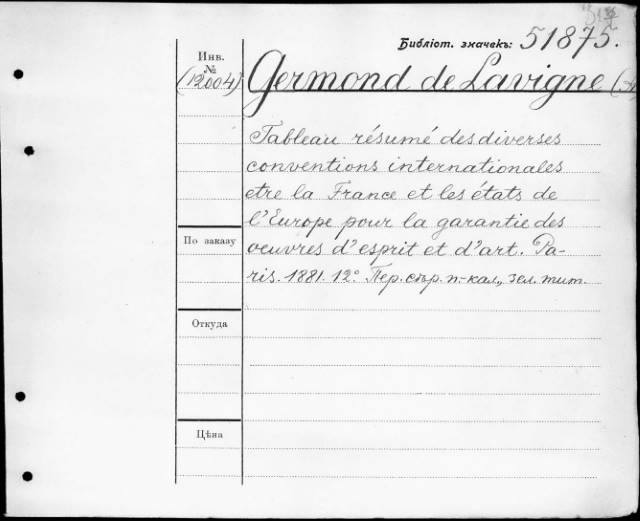 Библіот. значекъ: 51875.
Инв.
№
(12004)
Germond de Lavigne (A
Tableau résumé des diverses
conventions internationales
etre la France et les états de
l'Europe pour la garantie des
oeuvres d'esprit et d'art. Pa-
ris. 1881. 12° Пер. сѣр. п.-кал., зел. тит.
По заказу
Откуда
Цѣна